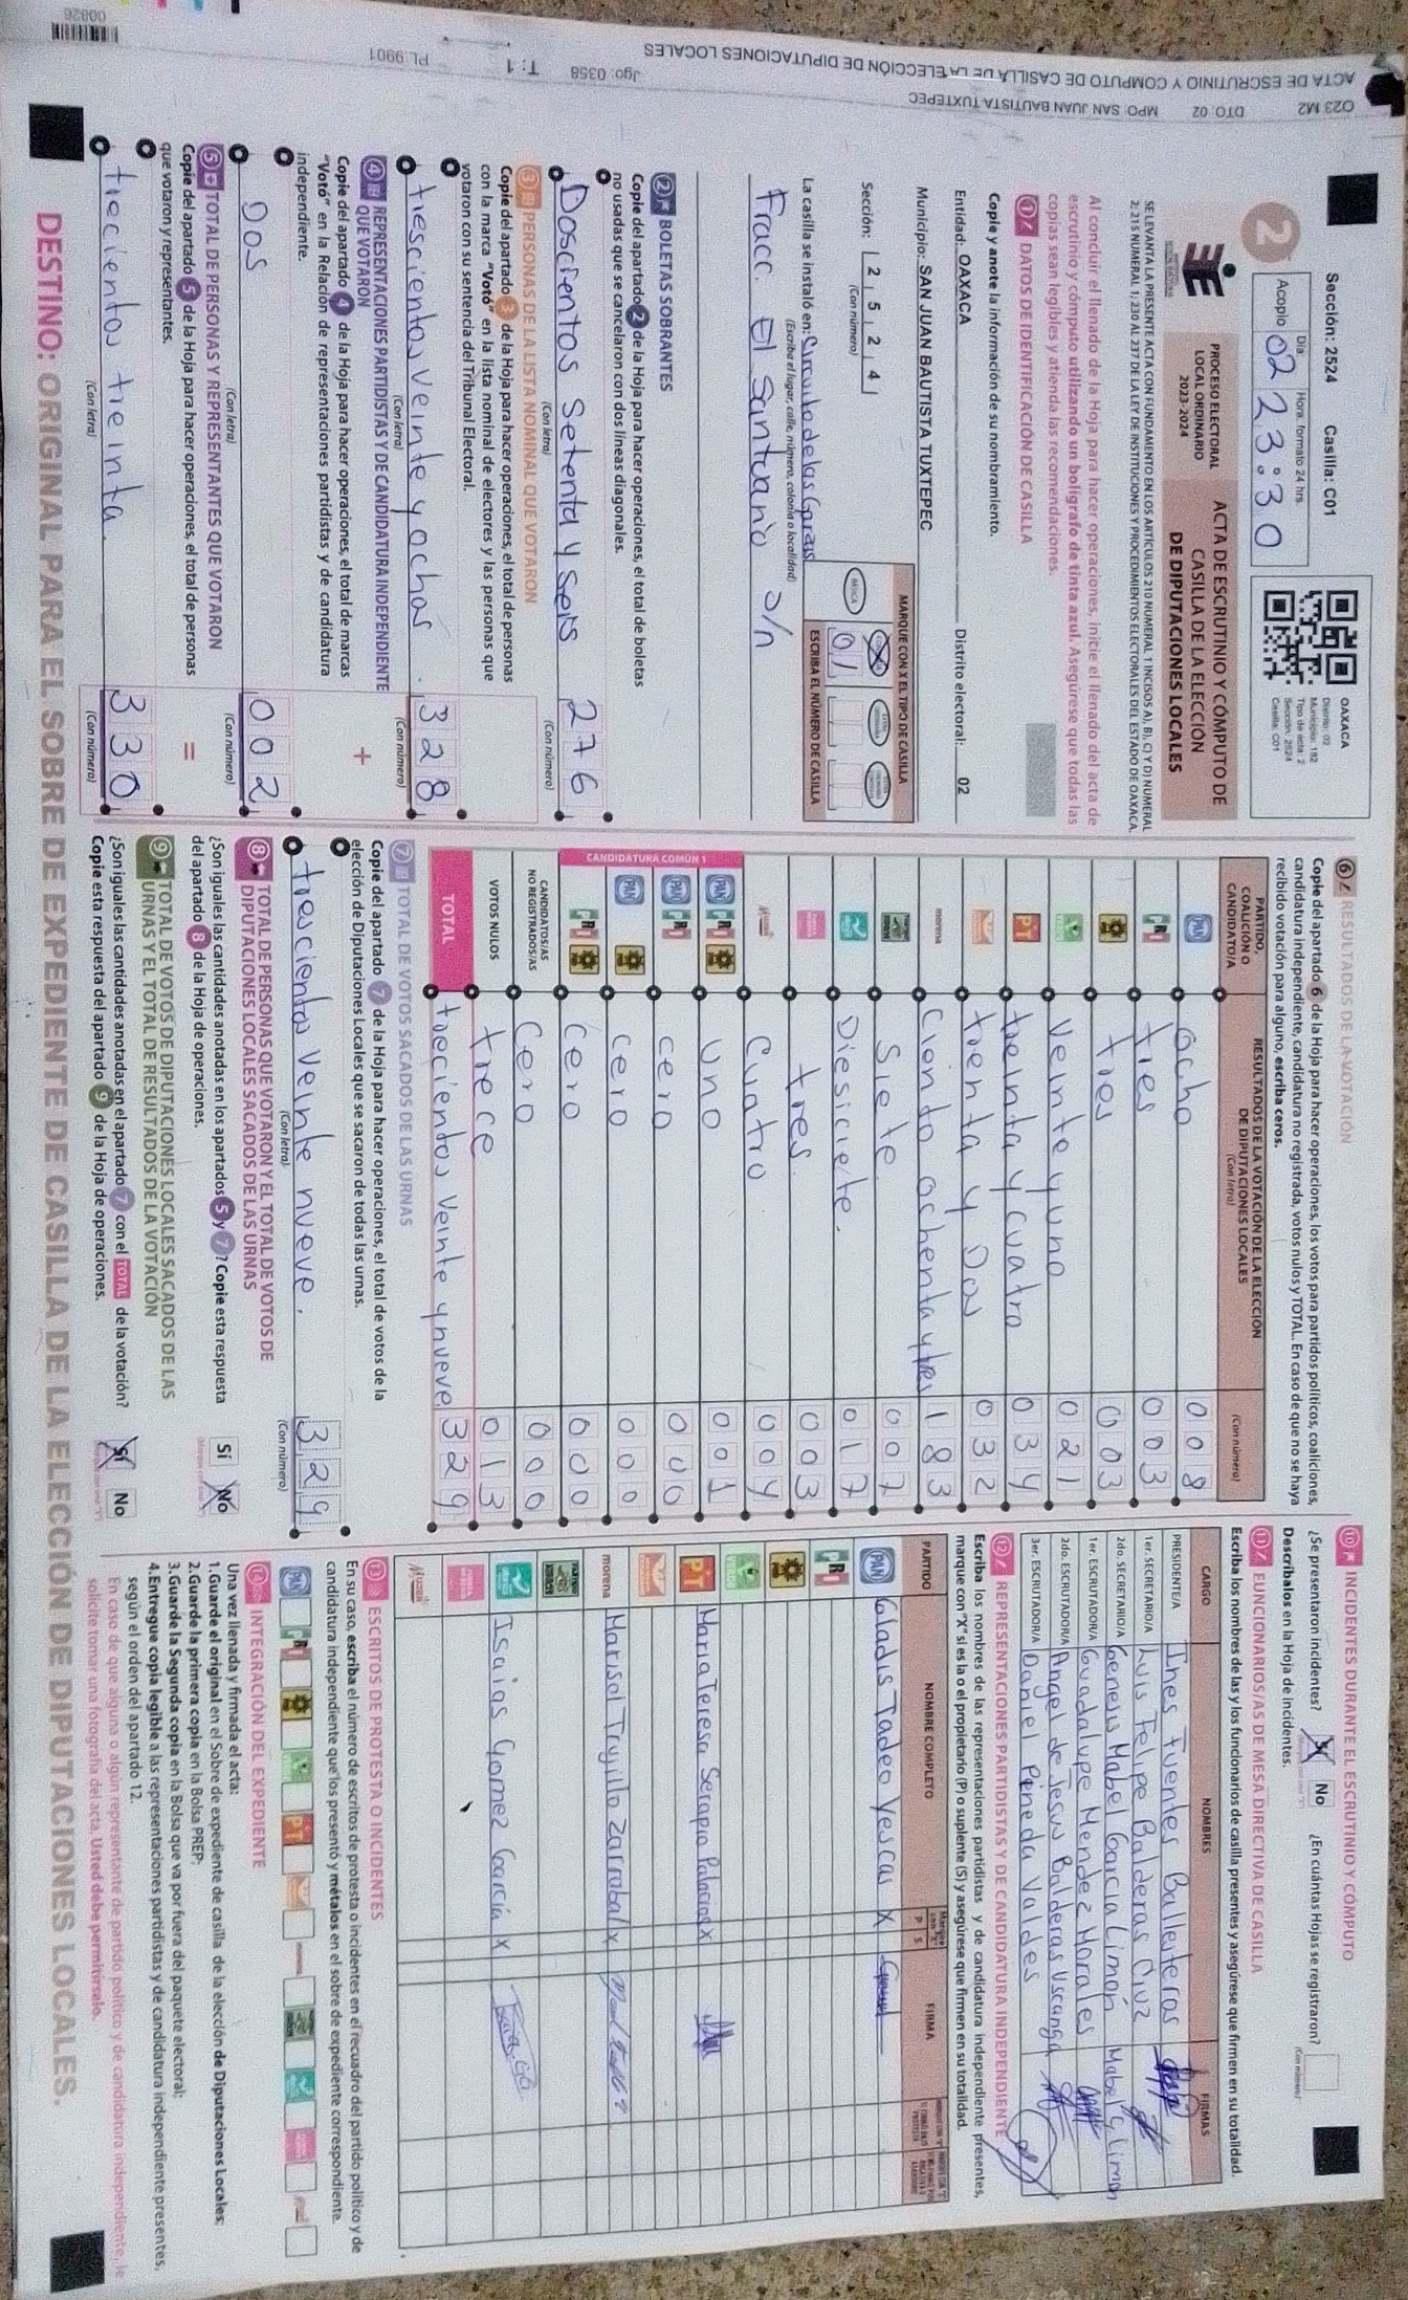 O23 M2 DTO: 02 MPO: SAN JUAN BAUTISTA TUXTEPEC
ACTA DE ESCRUTINIO Y CÓMPUTO DE CASILLA DE LA ELECCIÓN DE DIPUTACIONES LOCALES
Jgo: 0358 T: 1 PL: 9901
00826
Sección: 2524 Casilla: C01
2
Acopio
Día: Hora: formato 24 hrs.
02 23:30
OAXACA
Distrito: 02
Municipio: 182
Tipo de acta: 2
Sección: 2524
Casilla: C01
PROCESO ELECTORAL
LOCAL ORDINARIO
2023-2024
ACTA DE ESCRUTINIO Y CÓMPUTO DE
CASILLA DE LA ELECCIÓN
DE DIPUTACIONES LOCALES
SE LEVANTA LA PRESENTE ACTA CON FUNDAMENTO EN LOS ARTÍCULOS 210 NUMERAL 1 INCISOS A), B), C) Y D) NUMERAL
2; 215 NUMERAL 1; 230 AL 237 DE LA LEY DE INSTITUCIONES Y PROCEDIMIENTOS ELECTORALES DEL ESTADO DE OAXACA.
Al concluir el llenado de la Hoja para hacer operaciones, inicie el llenado del acta de
escrutinio y cómputo utilizando un bolígrafo de tinta azul. Asegúrese que todas las
copias sean legibles y atienda las recomendaciones.
1 DATOS DE IDENTIFICACIÓN DE CASILLA
Copie y anote la información de su nombramiento.
Entidad: OAXACA Distrito electoral: 02
Municipio: SAN JUAN BAUTISTA TUXTEPEC
Sección: 2 5 2 4
(Con número)
MARQUE CON X EL TIPO DE CASILLA
BÁSICA
01
ESCRIBA EL NÚMERO DE CASILLA
La casilla se instaló en: Circuito de las Garzas
(Escriba el lugar, calle, número, colonia o localidad)
Fracc. El Santuario s/n
2 BOLETAS SOBRANTES
Copie del apartado 2 de la Hoja para hacer operaciones, el total de boletas
no usadas que se cancelaron con dos líneas diagonales.
Doscientos Setenta y Seis 276
(Con letra) (Con número)
3 PERSONAS DE LA LISTA NOMINAL QUE VOTARON
Copie del apartado 3 de la Hoja para hacer operaciones, el total de personas
con la marca "Votó" en la lista nominal de electores y las personas que
votaron con su sentencia del Tribunal Electoral.
trescientos veinte y ochos. 328
(Con letra) (Con número)
+
4 REPRESENTACIONES PARTIDISTAS Y DE CANDIDATURA INDEPENDIENTE
QUE VOTARON
Copie del apartado 4 de la Hoja para hacer operaciones, el total de marcas
"Votó" en la Relación de representaciones partidistas y de candidatura
independiente.
Dos 002
(Con letra) (Con número)
=
5 TOTAL DE PERSONAS Y REPRESENTANTES QUE VOTARON
Copie del apartado 5 de la Hoja para hacer operaciones, el total de personas
que votaron y representantes.
trecientos treinta. 330
(Con letra) (Con número)
6 RESULTADOS DE LA VOTACIÓN
Copie del apartado 6 de la Hoja para hacer operaciones, los votos para partidos políticos, coaliciones,
candidatura independiente, candidatura no registrada, votos nulos y TOTAL. En caso de que no se haya
recibido votación para alguno, escriba ceros.
PARTIDO,
COALICIÓN O
CANDIDATO/A
RESULTADOS DE LA VOTACIÓN DE LA ELECCIÓN
DE DIPUTACIONES LOCALES
(Con letra) (Con número)
PAN ocho 008
PRI tres 003
tres 003
veinte y uno 021
PT treinta y cuatro 034
trenta y Dos 032
morena Ciento ochenta y tres 183
Siete 007
Diesiciete. 017
tres. 003
Cuatro 004
CANDIDATURA COMÚN 1
PAN PRI Uno 001
PAN PRI cero 000
PAN cero 000
PRI cero 000
CANDIDATOS/AS
NO REGISTRADOS/AS Cero 000
VOTOS NULOS trece 013
TOTAL trecientos veinte y nueve 329
7 TOTAL DE VOTOS SACADOS DE LAS URNAS
Copie del apartado 7 de la Hoja para hacer operaciones, el total de votos de la
elección de Diputaciones Locales que se sacaron de todas las urnas.
trescientos veinte nueve. 329
(Con letra) (Con número)
8 TOTAL DE PERSONAS QUE VOTARON Y EL TOTAL DE VOTOS DE
DIPUTACIONES LOCALES SACADOS DE LAS URNAS
¿Son iguales las cantidades anotadas en los apartados 5 y 7? Copie esta respuesta
del apartado 8 de la Hoja de operaciones.
Sí No
9 TOTAL DE VOTOS DE DIPUTACIONES LOCALES SACADOS DE LAS
URNAS Y EL TOTAL DE RESULTADOS DE LA VOTACIÓN
¿Son iguales las cantidades anotadas en el apartado 7 con el TOTAL de la votación?
Copie esta respuesta del apartado 9 de la Hoja de operaciones.
Sí No
10 INCIDENTES DURANTE EL ESCRUTINIO Y CÓMPUTO
¿Se presentaron incidentes? Sí No ¿En cuántas Hojas se registraron?
(Con número)
Descríbalos en la Hoja de incidentes.
11 FUNCIONARIOS/AS DE MESA DIRECTIVA DE CASILLA
Escriba los nombres de las y los funcionarios de casilla presentes y asegúrese que firmen en su totalidad.
CARGO NOMBRES FIRMAS
PRESIDENTE/A Ines Fuentes Ballesteros
1er. SECRETARIO/A Luis Felipe Balderas Cruz
2do. SECRETARIO/A Genesis Mabel Garcia Limón Mabel G Limon
1er. ESCRUTADOR/A Guadalupe Mendez Morales
2do. ESCRUTADOR/A Angel de Jesus Balderas Uscanga
3er. ESCRUTADOR/A Daniel Pineda Valdes
12 REPRESENTACIONES PARTIDISTAS Y DE CANDIDATURA INDEPENDIENTE
Escriba los nombres de las representaciones partidistas y de candidatura independiente presentes,
marque con "X" si es la o el propietario (P) o suplente (S) y asegúrese que firmen en su totalidad.
PARTIDO NOMBRE COMPLETO P S FIRMA
PAN Gladis Tadeo Yescas X
PRI
PT Maria Teresa Serapio Palacios X
morena Marisol Trujillo Zarrabal X
Isaias Gomez Garcia X
13 ESCRITOS DE PROTESTA O INCIDENTES
En su caso, escriba el número de escritos de protesta o incidentes en el recuadro del partido político y de
candidatura independiente que los presentó y métalos en el sobre de expediente correspondiente.
PAN PRI PT morena
14 INTEGRACIÓN DEL EXPEDIENTE
Una vez llenada y firmada el acta:
1. Guarde el original en el Sobre de expediente de casilla de la elección de Diputaciones Locales;
2. Guarde la primera copia en la Bolsa PREP;
3. Guarde la Segunda copia en la Bolsa que va por fuera del paquete electoral;
4. Entregue copia legible a las representaciones partidistas y de candidatura independiente presentes,
según el orden del apartado 12.
En caso de que alguna o algún representante de partido político y de candidatura independiente, le
solicite tomar una fotografía del acta, Usted debe permitírselo.
DESTINO: ORIGINAL PARA EL SOBRE DE EXPEDIENTE DE CASILLA DE LA ELECCIÓN DE DIPUTACIONES LOCALES.